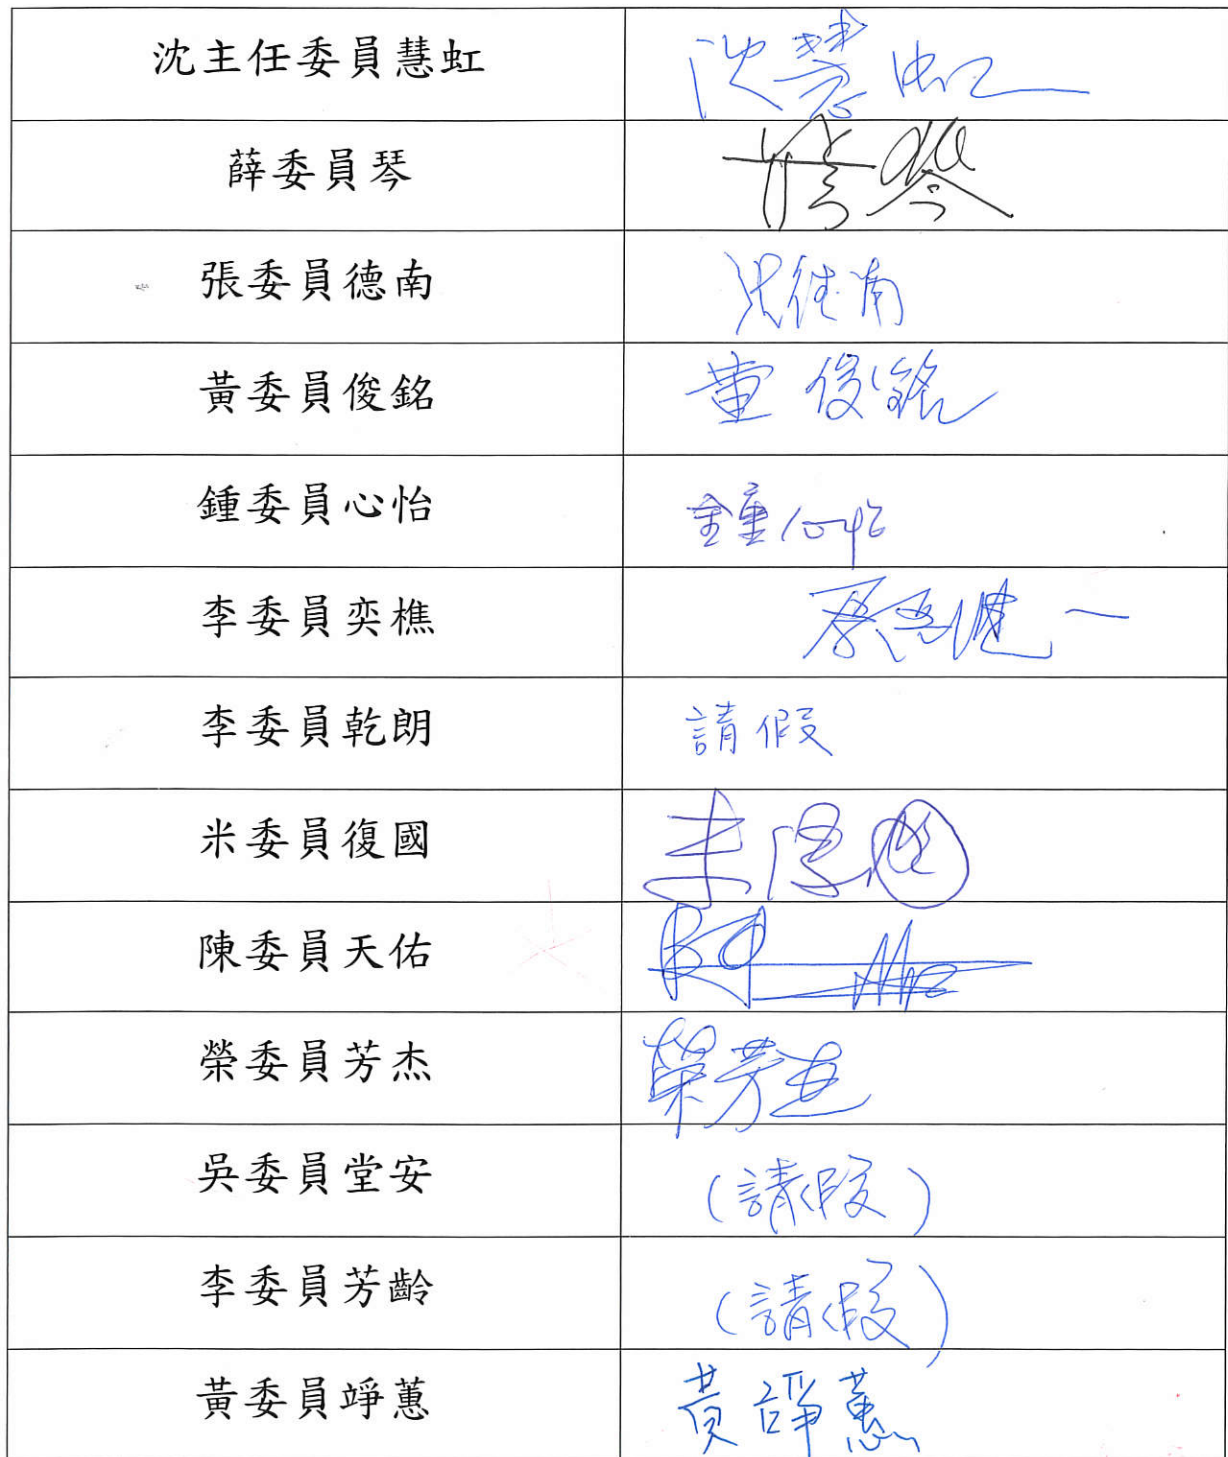 沈主任委員慧虹 沈慧虹
薛委員琴 薛琴
張委員德南 張德南
黃委員俊銘 黃俊銘
鍾委員心怡 鍾心怡
李委員奕樵
李委員乾朗 請假
米委員復國 米復國
陳委員天佑 陳
榮委員芳杰 榮芳杰
吳委員堂安 (請假)
李委員芳齡 (請假)
黃委員竫蕙 黃竫蕙